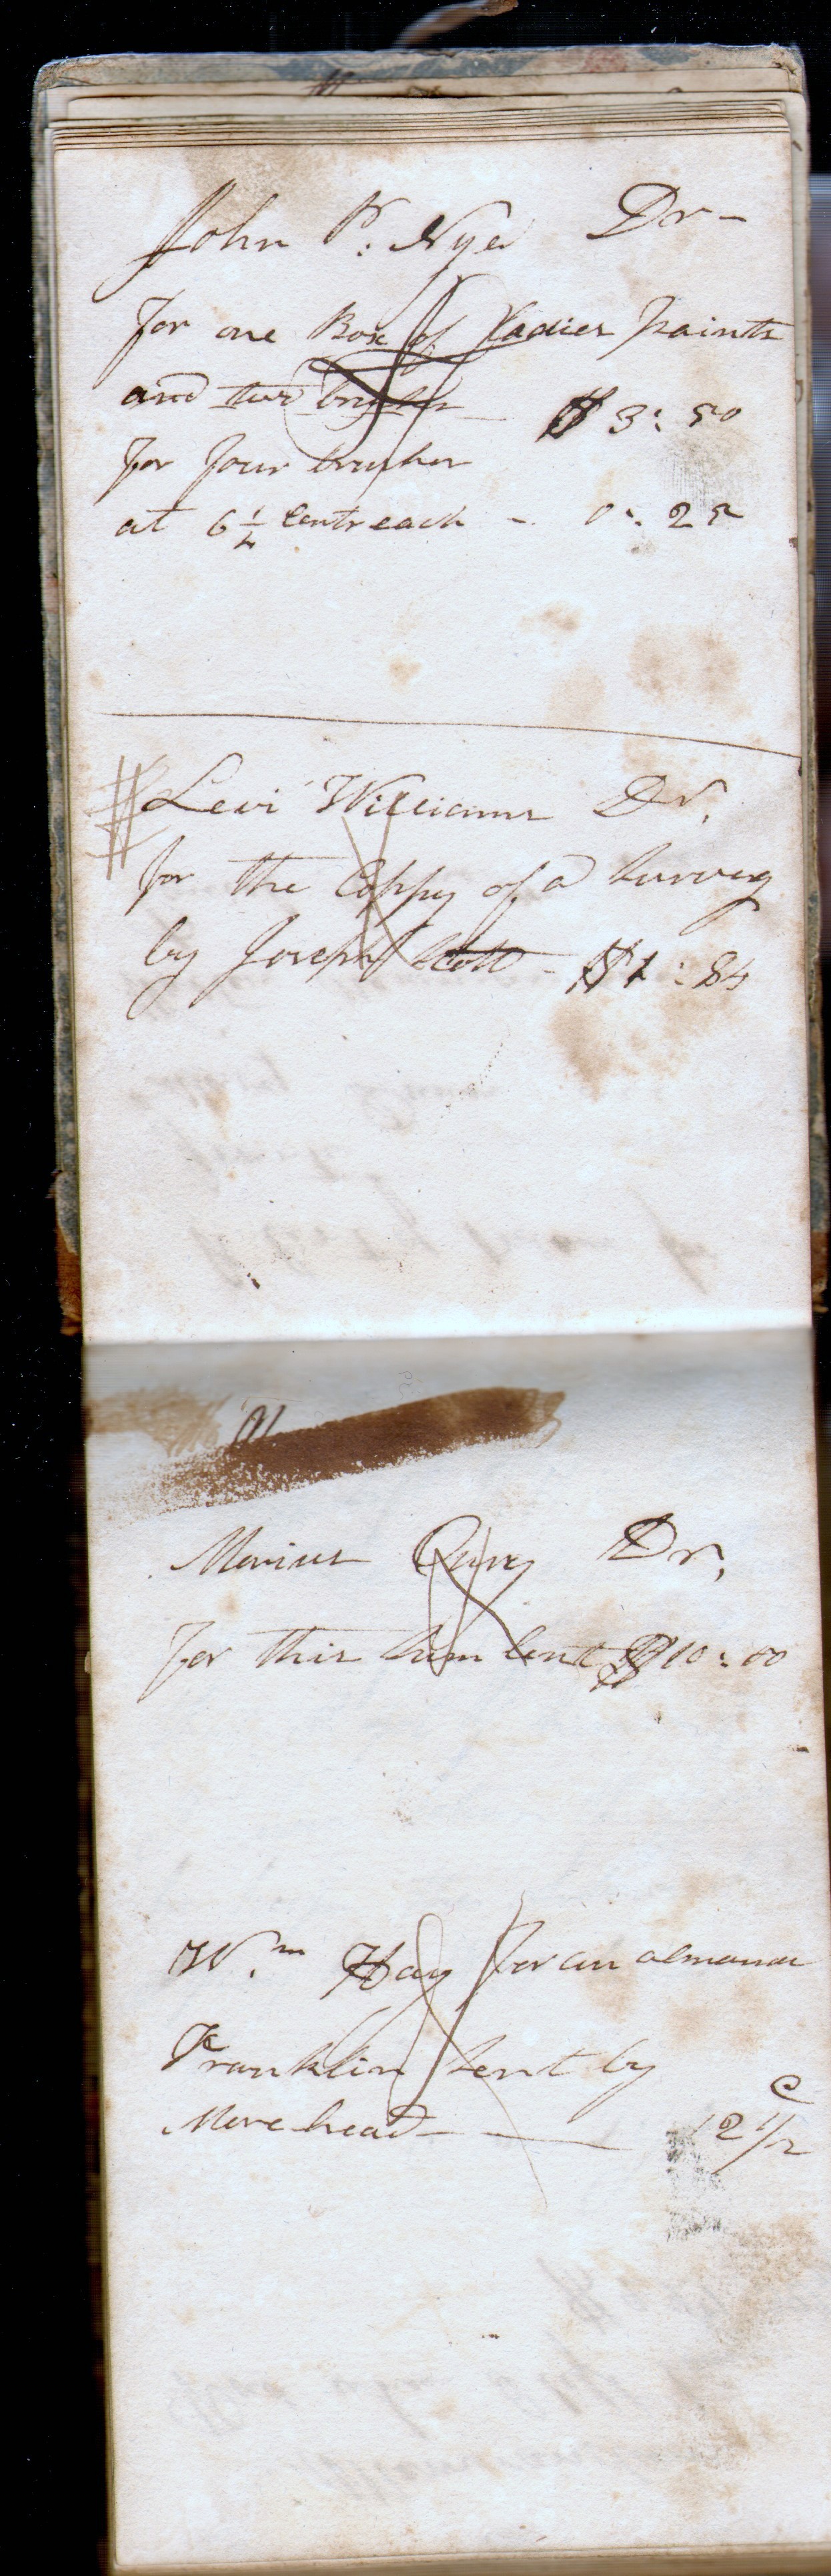 John P. Nye Dr -
for one Box of Ladies paints
and two brushes $ 3: 50
for four brushes
at 6 1/4 Cents each - 0: 25
Levi Williams Dr.
for the Coppy of a Survey
by Joseph Scott - $ 1: 84
Dr.
for this Sum lent $ 10: 00
Wm. Hay for an almanac
Franklin Sent by
Morehead - 12 1/2 c